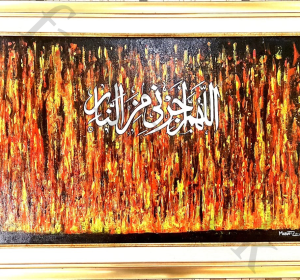 اللهم أجرني من النار